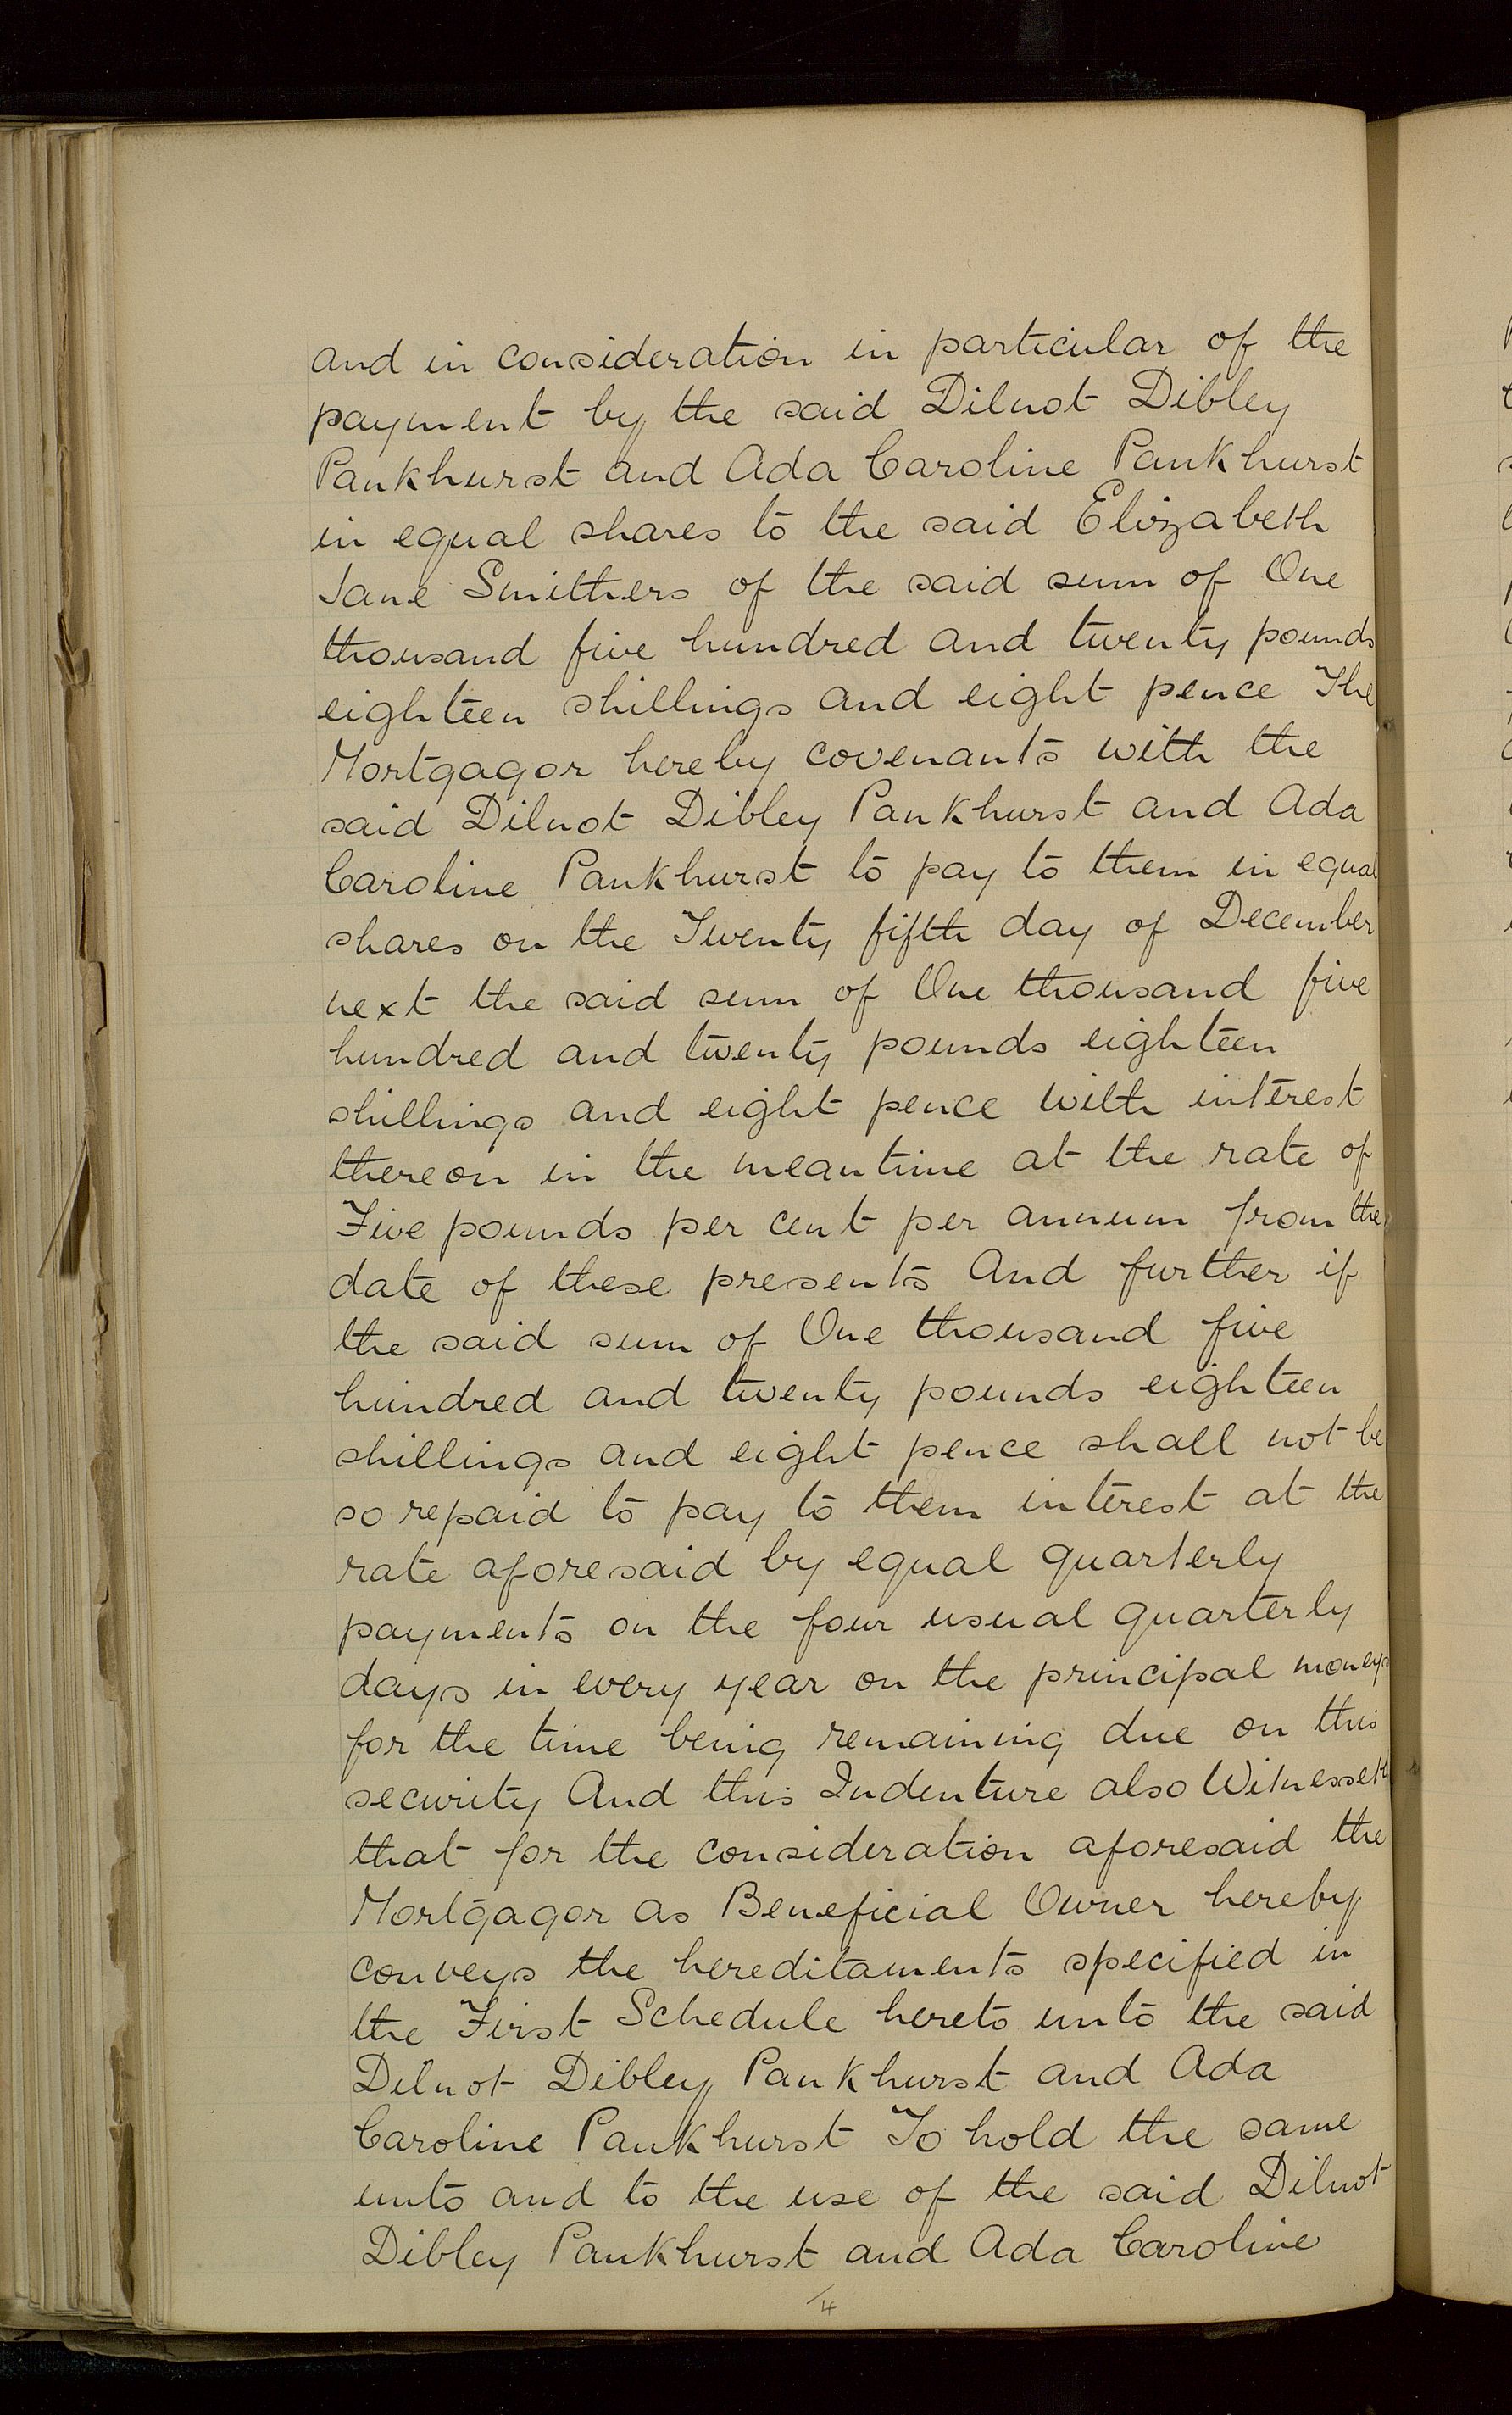 and in consideration in particular of the
payment by the said Dilnot Dibley
Pankhurst and Ada Caroline Pankhurst
in equal shares to the said Elizabeth
Jane Smithers of the said sum of One
thousand five hundred and twenty pounds
eighteen shillings and eight pence The
Mortgagor hereby covenants with the
said Dilnot Dibley Pankhurst and Ada
Caroline Pankhurst to pay to them in equal
shares on the Twenty fifth day of December
next the said sum of One thousand five
hundred and twenty pounds eighteen
shillings and eight pence with interest
thereon in the meantime at the rate of
Five pounds per cent per annum from the
date of these presents And further if
the said sum of One thousand five
hundred and twenty pounds eighteen
shillings and eight pence shall not be
so repaid to pay to them interest at the
rate aforesaid by equal quarterly
payments on the four usual quarterly
days in every year on the principal moneys
for the time being remaining due on this
security And this Indenture also Witnesseth
that for the consideration aforesaid the
Mortgagor as Beneficial Owner hereby
conveys the hereditaments specified in
the First Schedule hereto unto the said
Dilnot Dibley Pankhurst and Ada
Caroline Pankhurst To hold the same
unto and to the use of the said Dilnot
Dibley Pankhurst and Ada Caroline
4